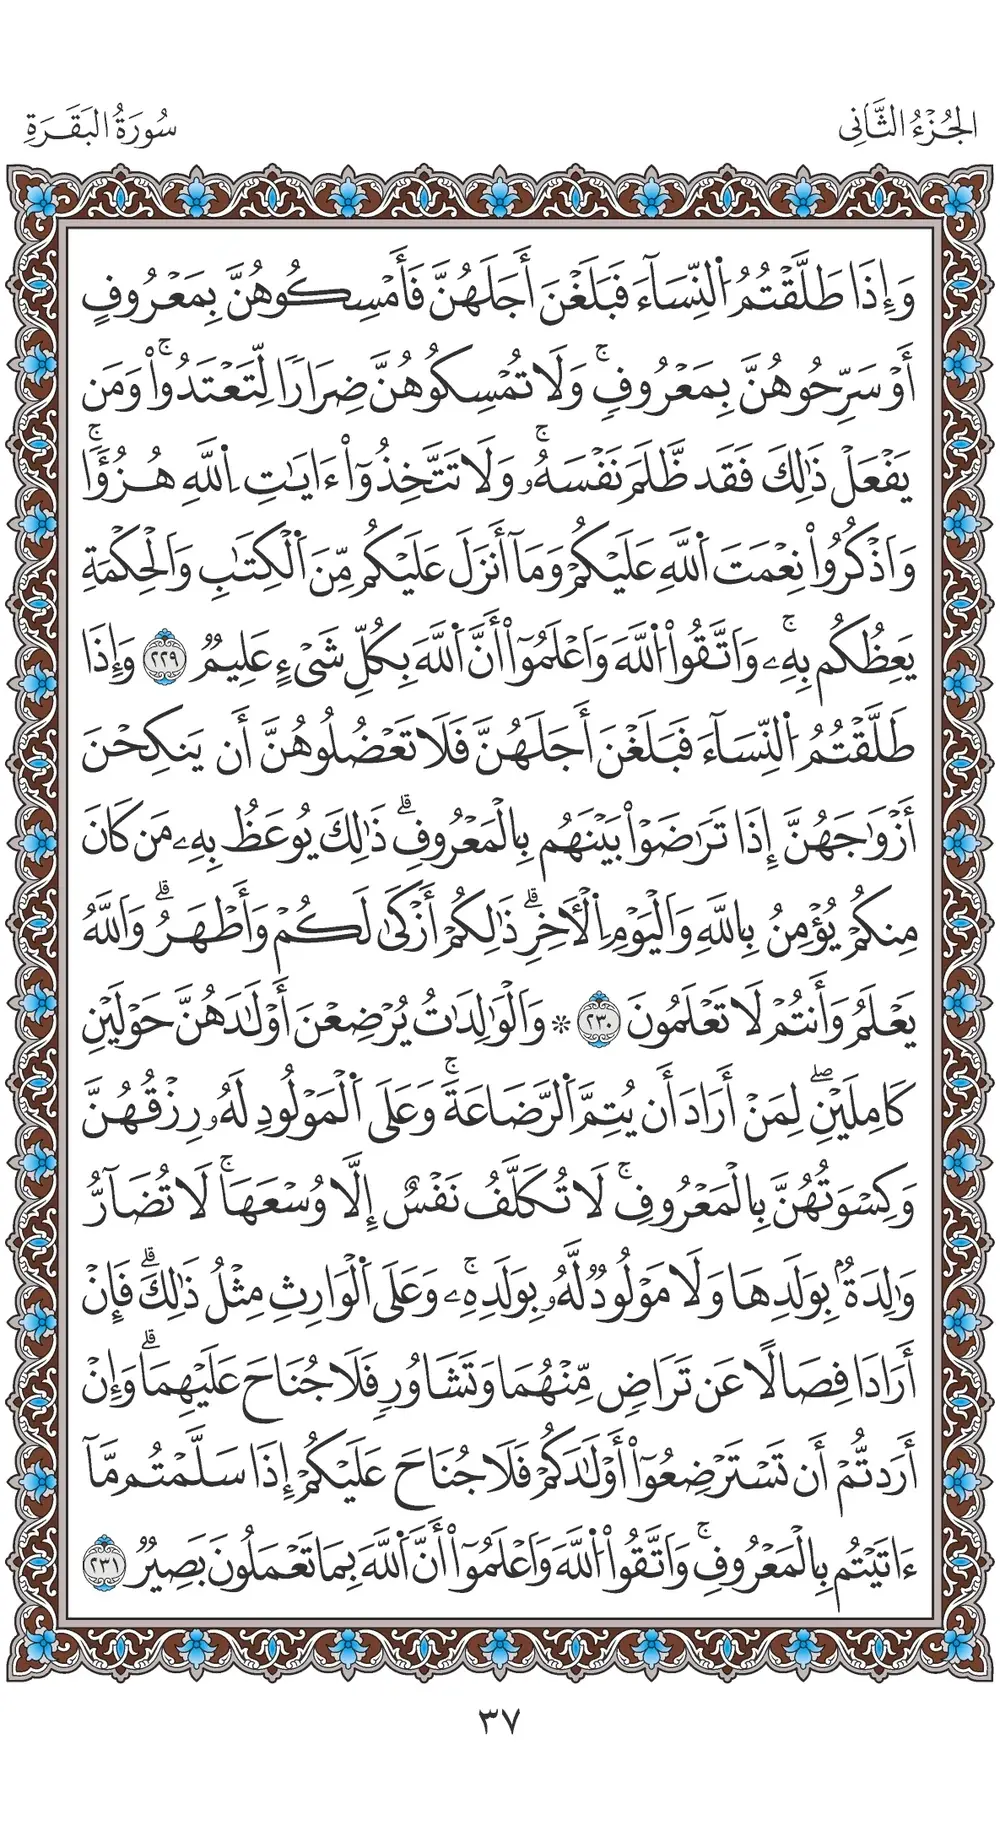 الجُزْءُ الثَّانِي
سُورَةُ البَقَرَةِ
وَإِذَا طَلَّقْتُمُ اُ۬لنِّسَآءَ فَبَلَغْنَ أَجَلَهُنَّ فَأَمْسِكُوهُنَّ بِمَعْرُوفٍ
أَوْ سَرِّحُوهُنَّ بِمَعْرُوفٖۚ وَلَا تُمْسِكُوهُنَّ ضِرَارٗا لِّتَعْتَدُواْۚ وَمَن
يَفْعَلْ ذَٰلِكَ فَقَد ظَّلَمَ نَفْسَهُۥۚ وَلَا تَتَّخِذُوٓاْ ءَايَٰتِ اِ۬للَّهِ هُزُؤٗاۚ
وَاَذْكُرُواْ نِعْمَتَ اَ۬للَّهِ عَلَيْكُمْ وَمَآ أَنزَلَ عَلَيْكُم مِّنَ اَ۬لْكِتَٰبِ وَالْحِكْمَةِ
يَعِظُكُم بِهِۦۚ وَاتَّقُواْ اُ۬للَّهَ وَاَعْلَمُوٓاْ أَنَّ اَ۬للَّهَ بِكُلِّ شَيْءٍ عَلِيمٞ ٢٢٩ وَإِذَا
طَلَّقْتُمُ اُ۬لنِّسَآءَ فَبَلَغْنَ أَجَلَهُنَّ فَلَا تَعْضُلُوهُنَّ أَن يَنكِحْنَ
أَزْوَٰجَهُنَّ إِذَا تَرَٰضَوْاْ بَيْنَهُم بِالْمَعْرُوفِۗ ذَٰلِكَ يُوعَظُ بِهِۦ مَن كَانَ
مِنكُمْ يُؤْمِنُ بِاللَّهِ وَالْيَوْمِ اِ۬لْأٓخِرِۗ ذَٰلِكُمْ أَزْكَىٰ لَكُمْ وَأَطْهَرُۗ وَاللَّهُ
يَعْلَمُ وَأَنتُمْ لَا تَعْلَمُونَ ٢٣٠ ۞ وَالْوَٰلِدَٰتُ يُرْضِعْنَ أَوْلَٰدَهُنَّ حَوْلَيْنِ
كَامِلَيْنِۖ لِمَنْ أَرَادَ أَن يُتِمَّ اَ۬لرَّضَاعَةَۚ وَعَلَى اَ۬لْمَوْلُودِ لَهُۥ رِزْقُهُنَّ
وَكِسْوَتُهُنَّ بِالْمَعْرُوفِۚ لَا تُكَلَّفُ نَفْسٌ إِلَّا وُسْعَهَاۚ لَا تُضَآرُّ
وَٰلِدَةُۢ بِوَلَدِهَا وَلَا مَوْلُودٞ لَّهُۥ بِوَلَدِهِۦۚ وَعَلَى اَ۬لْوَارِثِ مِثْلُ ذَٰلِكَۗ فَإِنْ
أَرَادَا فِصَالًا عَن تَرَاضٖ مِّنْهُمَا وَتَشَاوُرٖ فَلَا جُنَاحَ عَلَيْهِمَاۗ وَإِنْ
أَرَدتُّمْ أَن تَسْتَرْضِعُوٓاْ أَوْلَٰدَكُمْ فَلَا جُنَاحَ عَلَيْكُمْ إِذَا سَلَّمْتُم مَّآ
ءَاتَيْتُم بِالْمَعْرُوفِۚ وَاتَّقُواْ اُ۬للَّهَ وَاَعْلَمُوٓاْ أَنَّ اَ۬للَّهَ بِمَا تَعْمَلُونَ بَصِيرٞ ٢٣١
٣٧